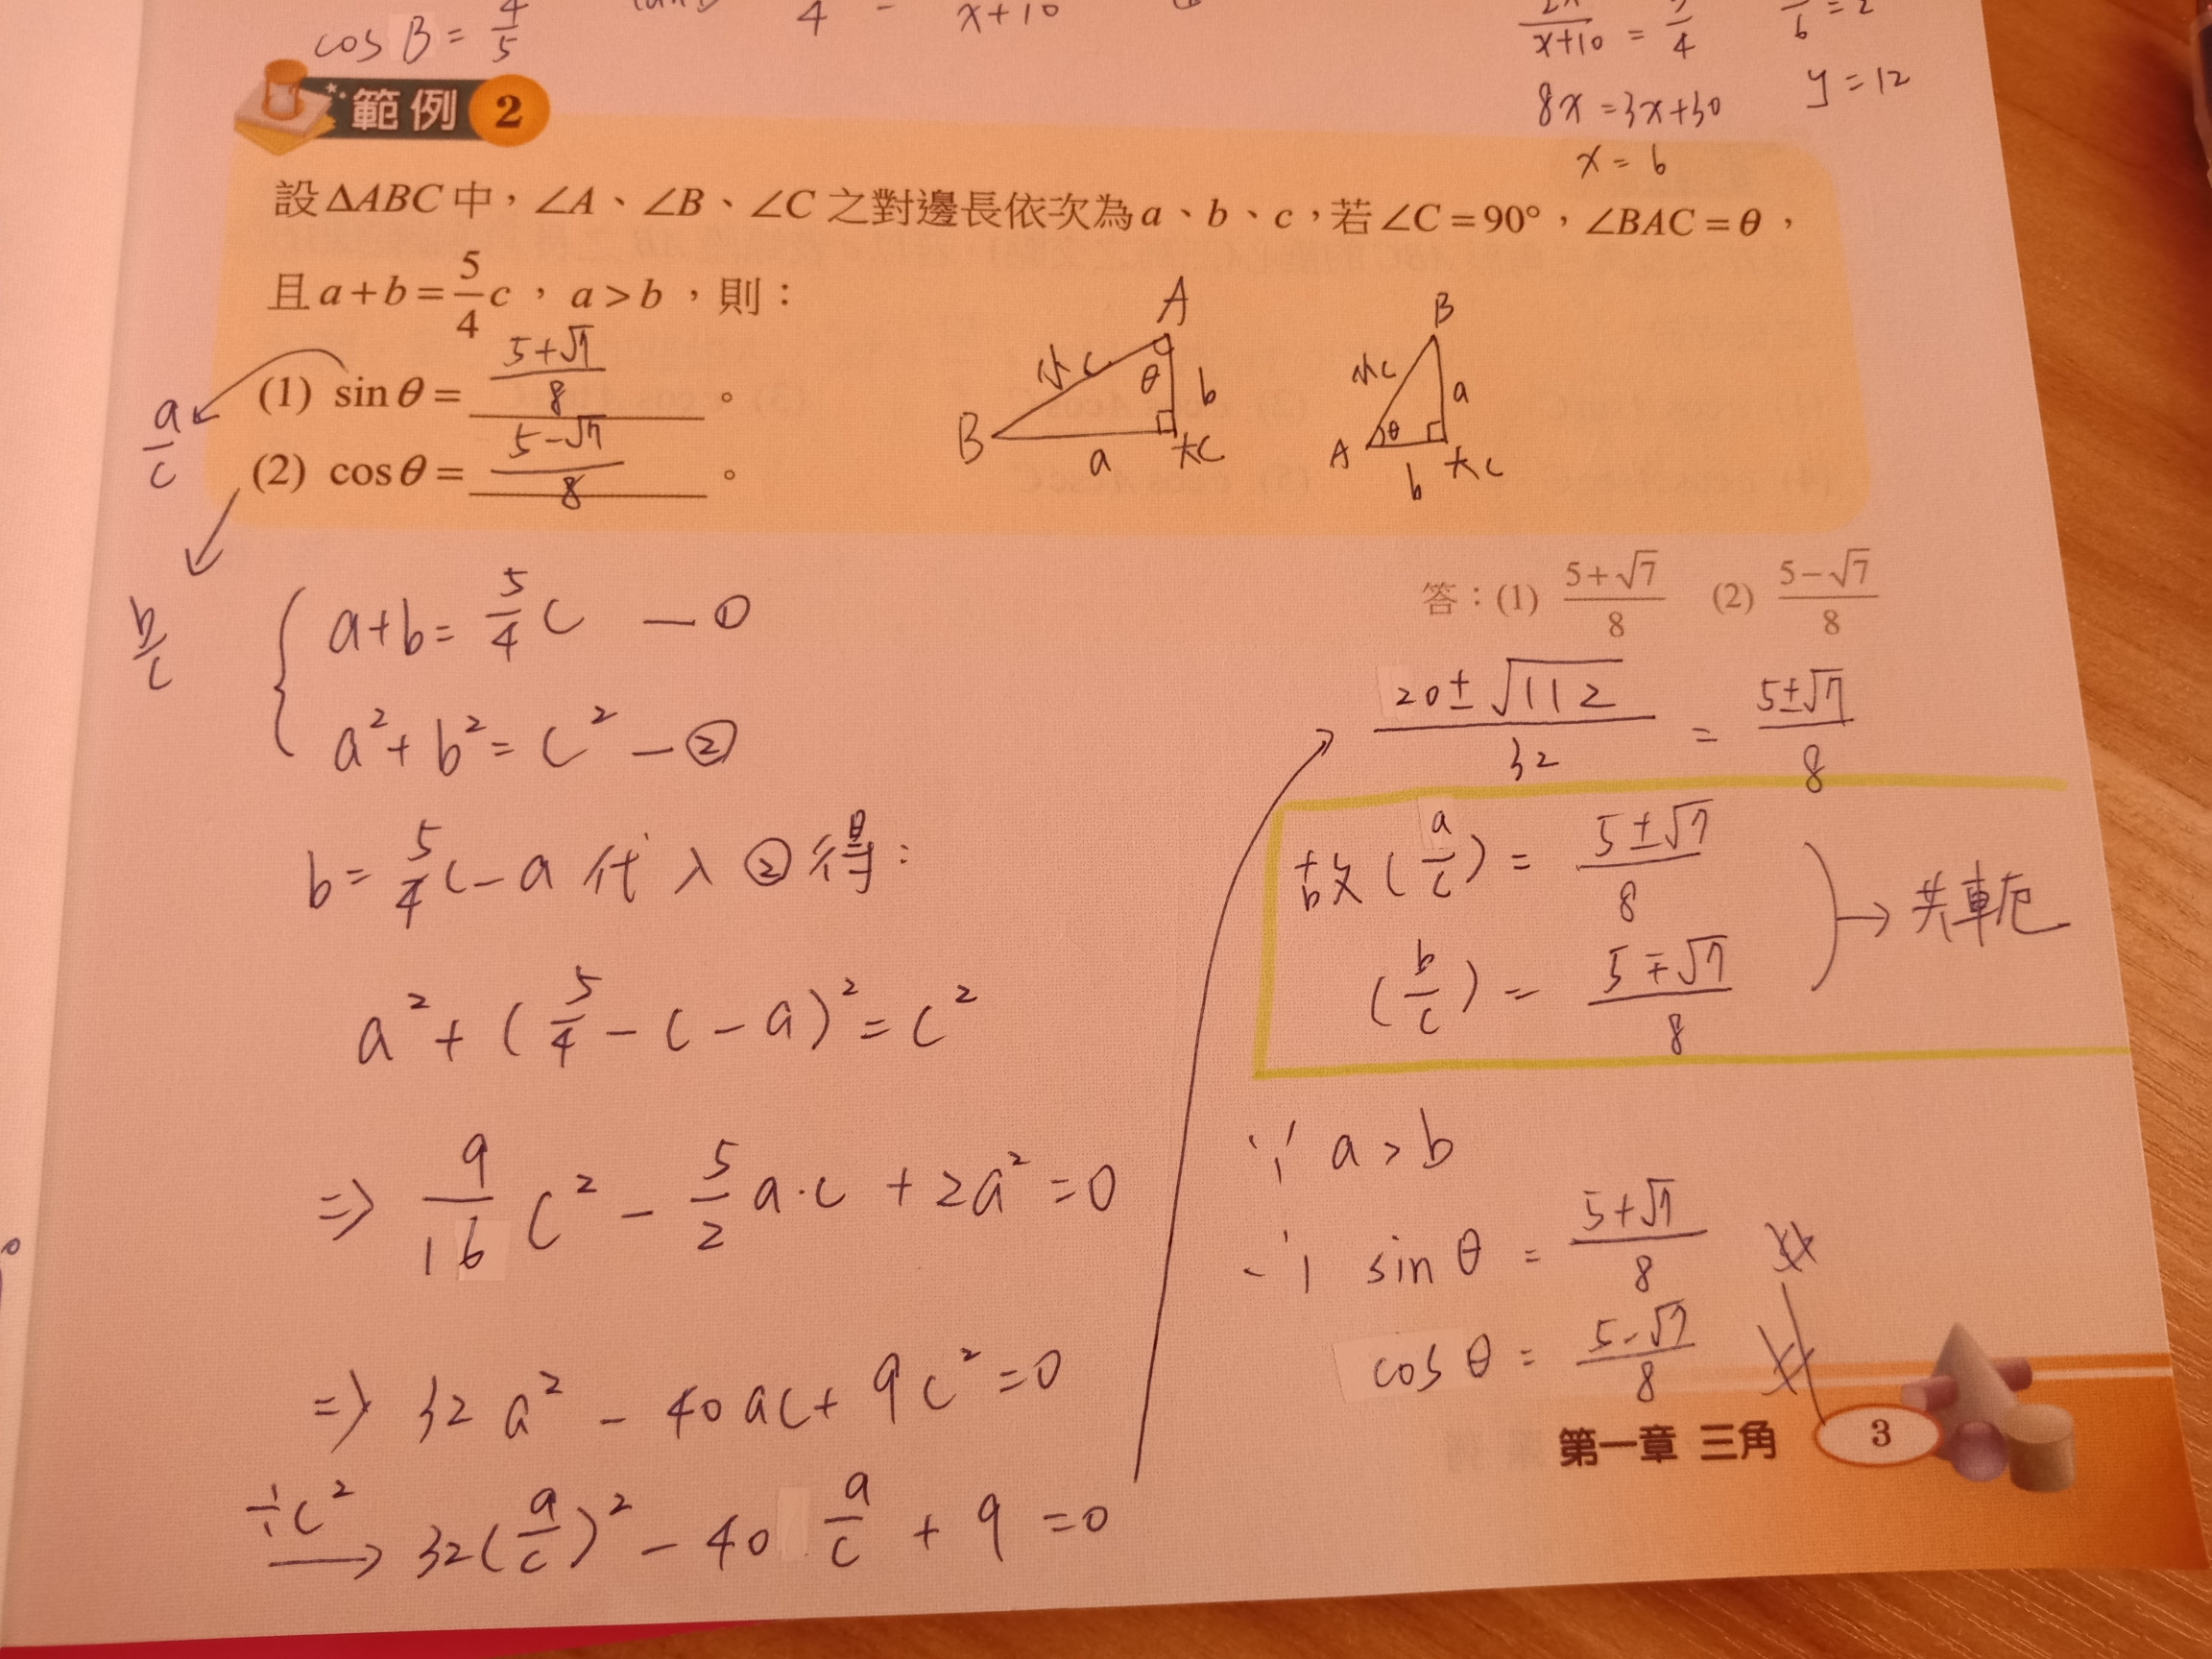 cos B = 4/5
4 - x+10
x+10 = 4
6 = 2
8x = 3x+30
y = 12
x = 6
範例 2
設 ΔABC 中，∠A、∠B、∠C 之對邊長依次為 a、b、c，若 ∠C = 90°，∠BAC = θ，
且 a + b = 5/4 c，a > b，則：
(1) sin θ = (5+√7)/8 。
(2) cos θ = (5-√7)/8 。
a/c
b/c
A
小c
θ
b
B
a
大C
B
小c
a
A
θ
b
大C
答：(1) (5+√7)/8 (2) (5-√7)/8
a+b = 5/4 c — ①
a² + b² = c² — ②
b = 5/4 c - a 代入②得：
a² + (5/4 - c - a)² = c²
⇒ 9/16 c² - 5/2 a·c + 2a² = 0
⇒ 32a² - 40ac + 9c² = 0
÷c² → 32(a/c)² - 40 a/c + 9 = 0
(20±√112)/32 = (5±√7)/8
故 (a/c) = (5±√7)/8
(b/c) = (5∓√7)/8
→ 共軛
∵ a > b
∴ sin θ = (5+√7)/8
cos θ = (5-√7)/8
第一章 三角 3